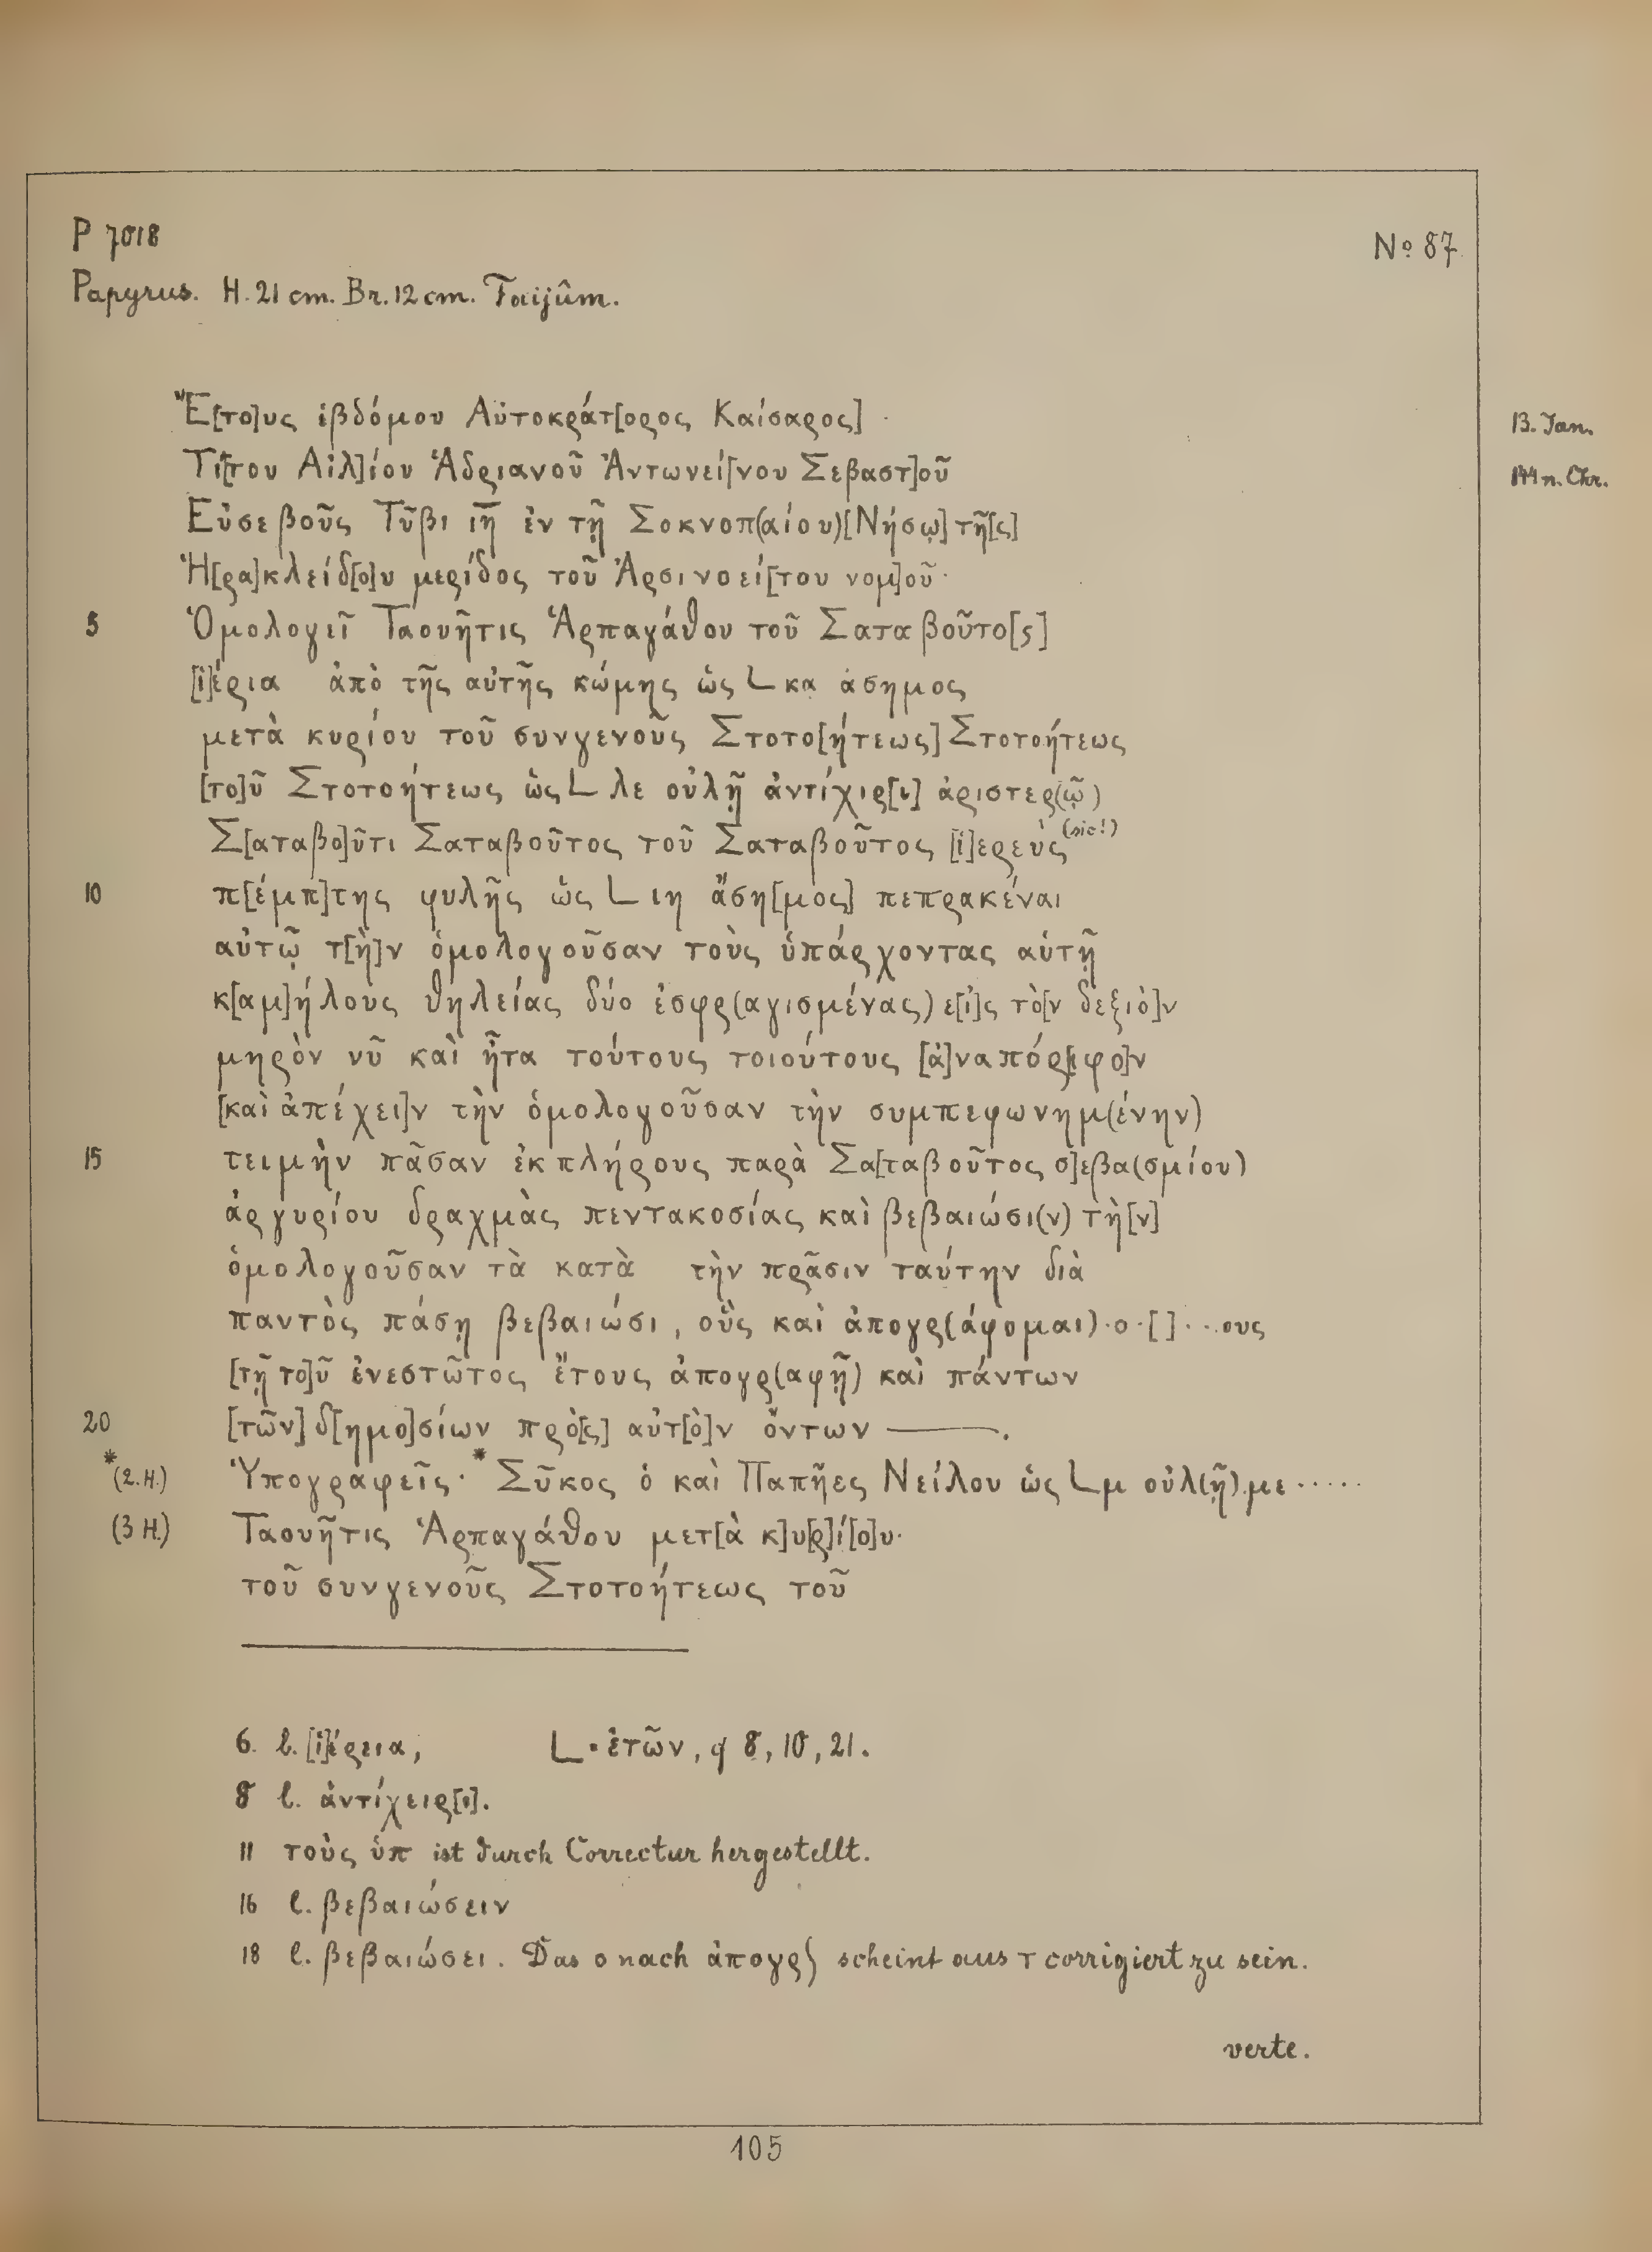 P 7018
No 87
Papyrus. H. 21 cm. Br. 12 cm. Faijûm.
Ἔ[το]υς ἑβδόμου Αὐτοκράτ[ορος Καίσαρος]
13. Jan.
Τί[του Αἰλ]ίου Ἁδριανοῦ Ἀντωνεί[νου Σεβαστ]οῦ
144 n. Chr.
Εὐσεβοῦς Τῦβι ιη̅ ἐν τῇ Σοκνοπ(αίου)[Νήσῳ] τῆ[ς]
Ἡ[ρα]κλείδ[ο]υ μερίδος τοῦ Ἀρσινοεί[του νομ]οῦ·
5 Ὁμολογεῖ Ταουῆτις Ἁρπαγάθου τοῦ Σαταβοῦτο[ς]
[ἱ]έρια ἀπὸ τῆς αὐτῆς κώμης ὡς L κα ἄσημος
μετὰ κυρίου τοῦ συνγενοῦς Στοτο[ήτεως] Στοτοήτεως
[το]ῦ Στοτοήτεως ὡς L λε οὐλῇ ἀντίχιρ[ι] ἀριστερ(ῷ)
Σ[αταβο]ῦτι Σαταβοῦτος τοῦ Σαταβοῦτος [ἱ]ερεὺς (sic!)
10 π[έμπ]της φυλῆς ὡς L ιη ἄση[μος] πεπρακέναι
αὐτῷ τ[ὴ]ν ὁμολογοῦσαν τοὺς ὑπάρχοντας αὐτῇ
κ[αμ]ήλους θηλείας δύο ἐσφρ(αγισμένας) ε[ἰ]ς τὸ[ν δεξιὸ]ν
μηρὸν νῦ καὶ ἦτα τούτους τοιούτους [ἀ]ναπόρ[ιφο]ν
[καὶ ἀπέχει]ν τὴν ὁμολογοῦσαν τὴν συμπεφωνημ(ένην)
15 τειμὴν πᾶσαν ἐκπλήρους παρὰ Σα[ταβοῦτος σ]εβα(σμίου)
ἀργυρίου δραχμὰς πεντακοσίας καὶ βεβαιώσι(ν) τὴ[ν]
ὁμολογοῦσαν τὰ κατὰ τὴν πρᾶσιν ταύτην διὰ
παντὸς πάσῃ βεβαιώσι, οὓς καὶ ἀπογρ(άφομαι)·ο·[]···ους
[τῇ το]ῦ ἐνεστῶτος ἔτους ἀπογρ(αφῇ) καὶ πάντων
20 [τῶν] δ[ημο]σίων πρὸ[ς] αὐτ[ὸ]ν ὄντων ———.
*(2. H.) Ὑπογραφεῖς·* Σῦκος ὁ καὶ Παπῆες Νείλου ὡς L μ οὐλ(ῇ) με·····
(3 H.) Ταουῆτις Ἁρπαγάθου μετ[ὰ κ]υ[ρ]ί[ο]υ·
τοῦ συνγενοῦς Στοτοήτεως τοῦ
6. l. [ἱ]έρεια, L = ἐτῶν, cf 8, 10, 21.
8 l. ἀντίχειρ[ι].
11 τοὺς ὑπ ist durch Correctur hergestellt.
16 l. βεβαιώσειν
18 l. βεβαιώσει. Das ο nach ἀπογρ) scheint aus τ corrigiert zu sein.
verte.
105